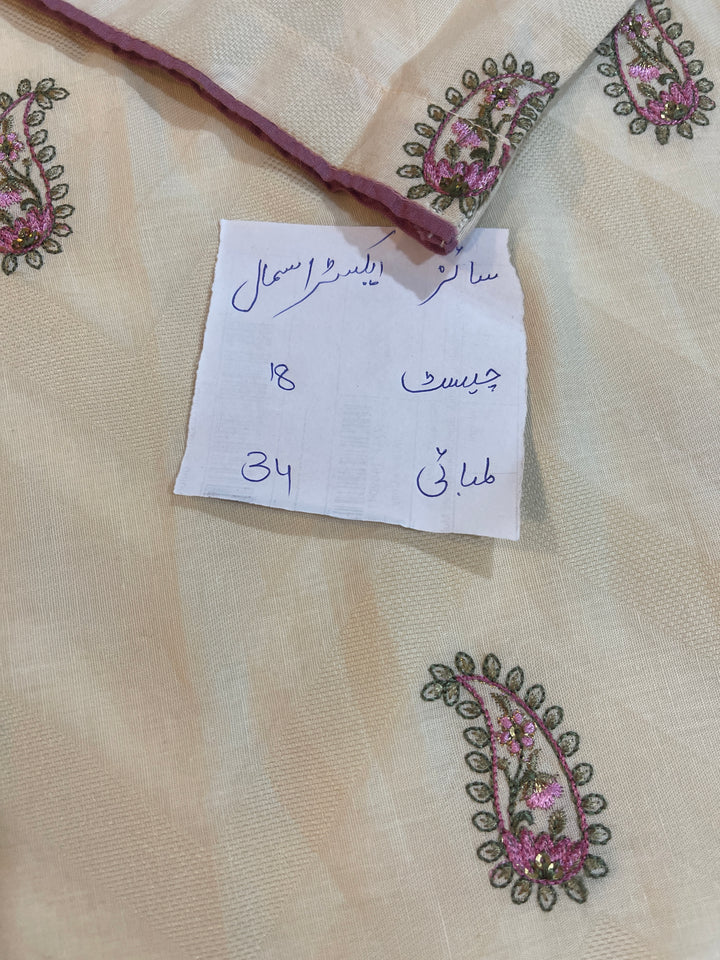 سائز ایکسٹرا سمال
چیسٹ 18
لمبائی 34